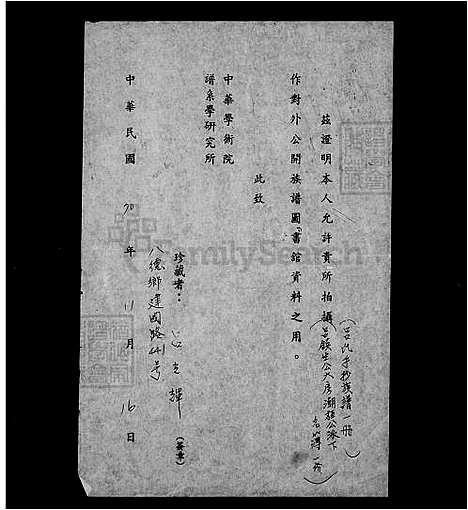 茲證明本人允許貴所拍攝(呂氏手抄族譜一冊
呂領生公大房潮頭公派下
名簿一份)
作對外公開族譜圖書館資料之用。
此致
中華學術院
譜系學研究所
珍藏者:呂立輝(簽章)
八德鄉建國路441号
中華民國70年11月16日
FamilySearch